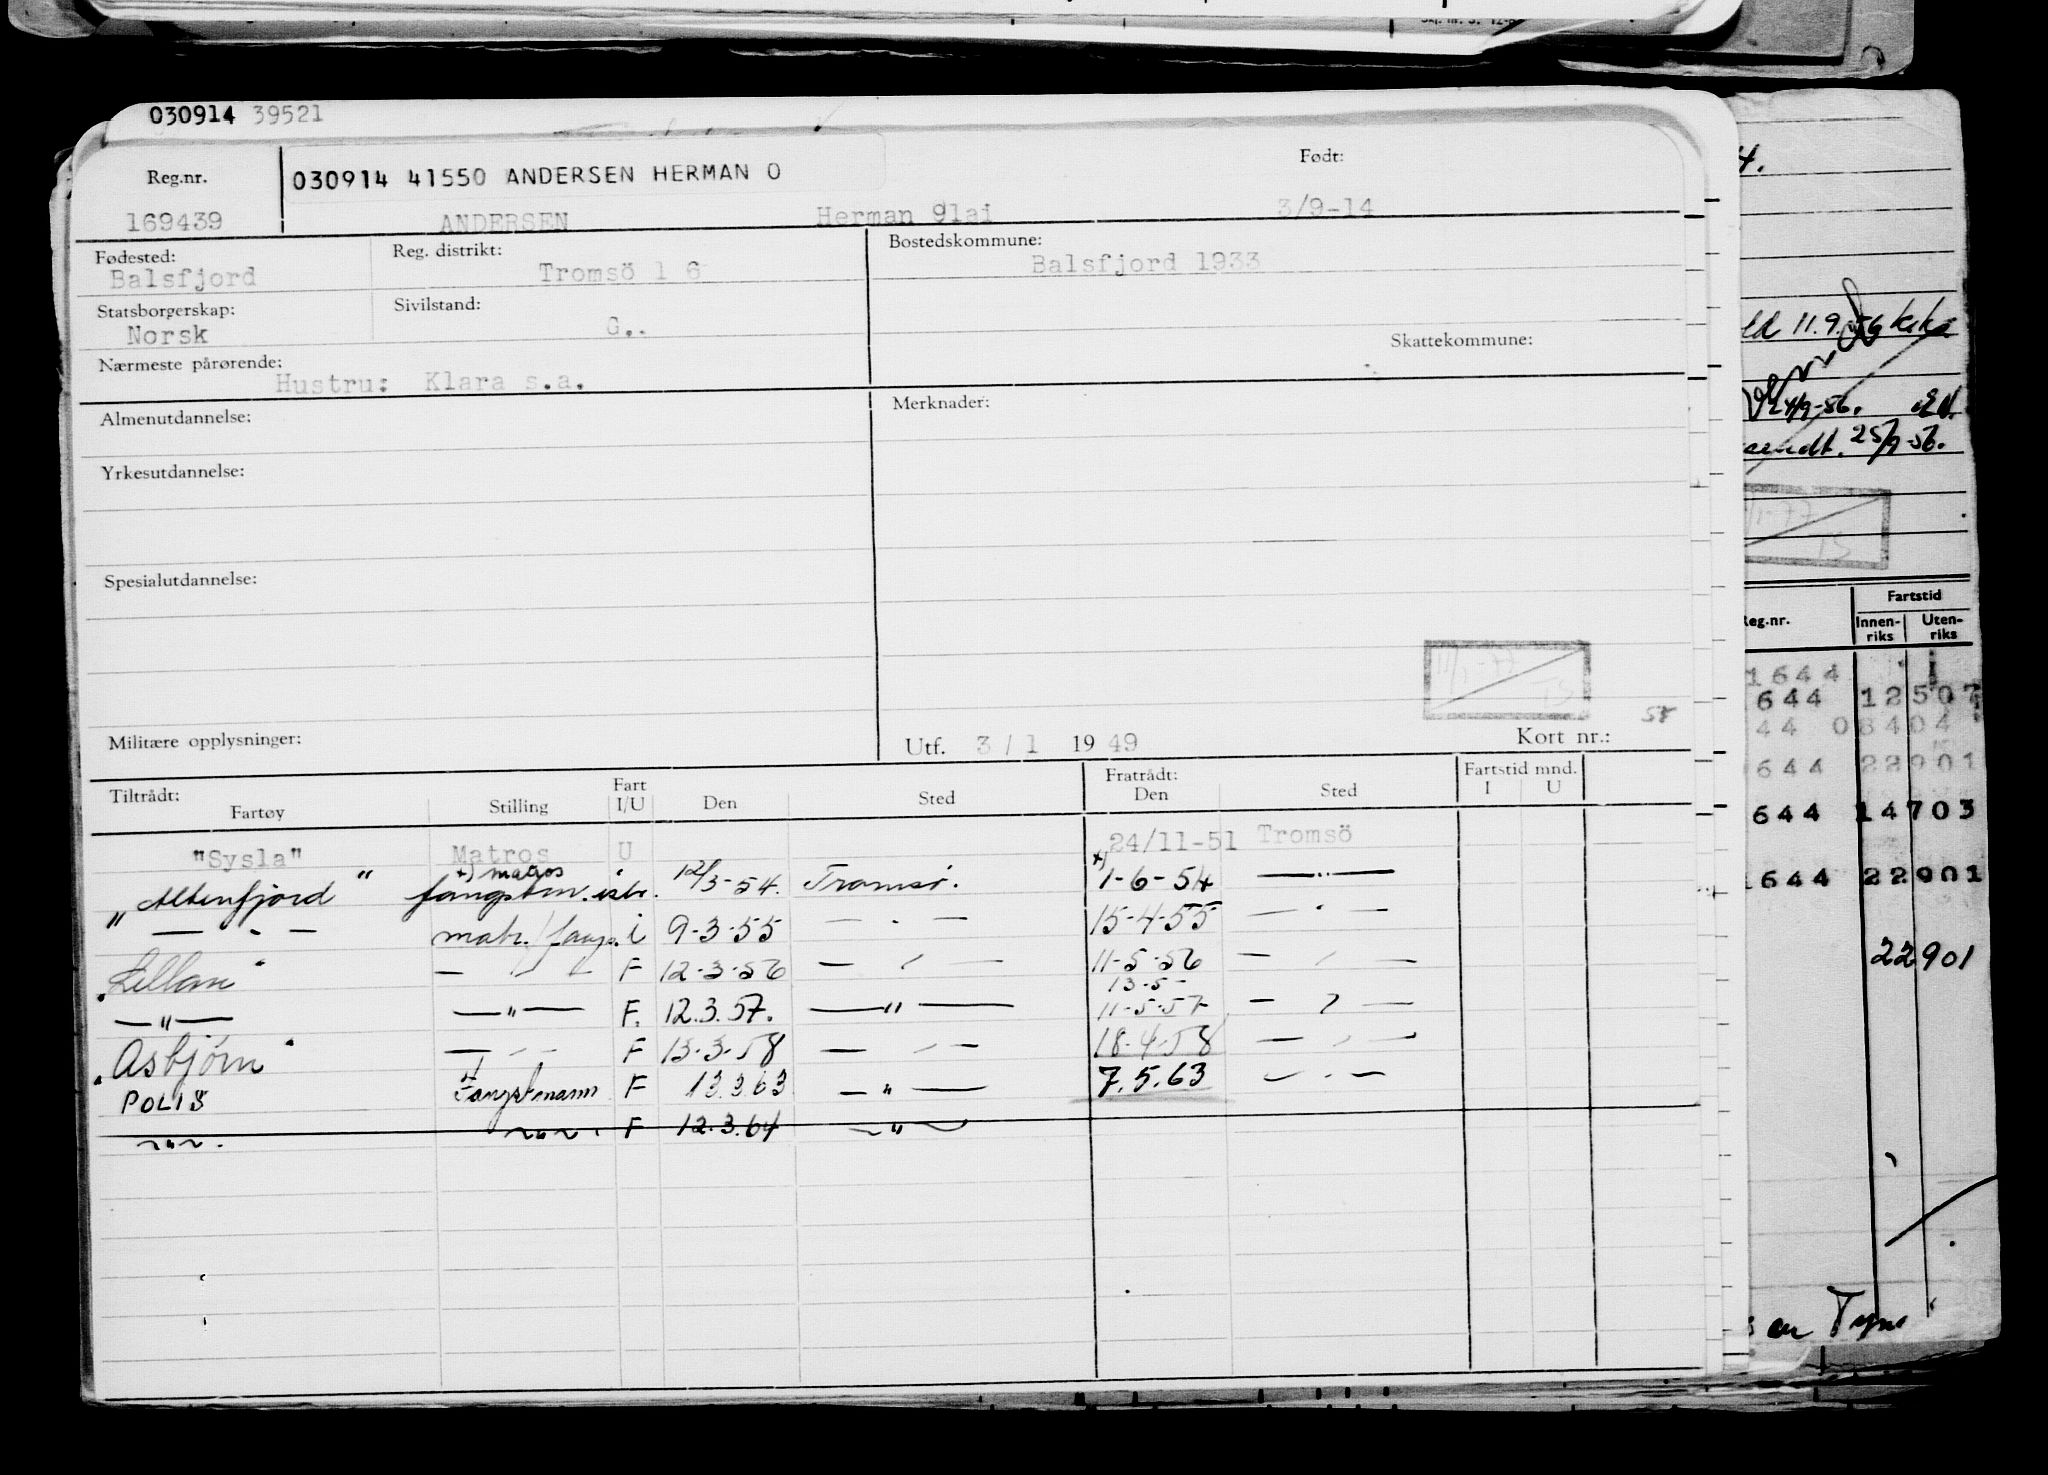 030914 39521
Reg.nr.
030914 41550 ANDERSEN HERMAN O
Født:
169439 ANDERSEN Herman 9lai 3/9-14
Fødested: Balsfjord
Reg. distrikt: Tromsö 1 6
Bostedskommune: Balsfjord 1933
Statsborgerskap: Norsk
Sivilstand: G..
Skattekommune:
Nærmeste pårørende: Hustru: Klara s.a.
Almenutdannelse:
Merknader:
Yrkesutdannelse:
Spesialutdannelse:
11/1-77
TS
58
Militære opplysninger:
Utf. 3/1 1949
Kort nr.:
Tiltrådt: Fratrådt: Fartstid mnd.
Fartøy Stilling Fart I/U Den Sted Den Sted I U
"Sysla" Matros U 24/11-51 Tromsö
+) matros +)
"Altenfjord" fangstm. isbr. 12/3-54. Tromsö. 1-6-54 — " —
— " — matr./fangs. i 9-3-55 — " — 15-4-55 — " —
— " — F 12-3-56 — " — 11-5-56 — " —
13-5-
— " — — " — F. 12.3.57. — " — 11-5-57 — " —
"Asbjørn" — " — F 13-3-58 — " — 18-4-58 — " —
POLIS Fangstmann F 13.3.63 — " — 7.5.63 — " —
— " — . — " — . F 12.3.64 — " —
4.
11.9.56
24/9-56.
sendt. 25/9-56.
1-77
TS
Fartstid
Reg.nr. Innen-riks Uten-riks
1644
644 12507
44 08404
644 22901
644 14703
1644 22901
22901